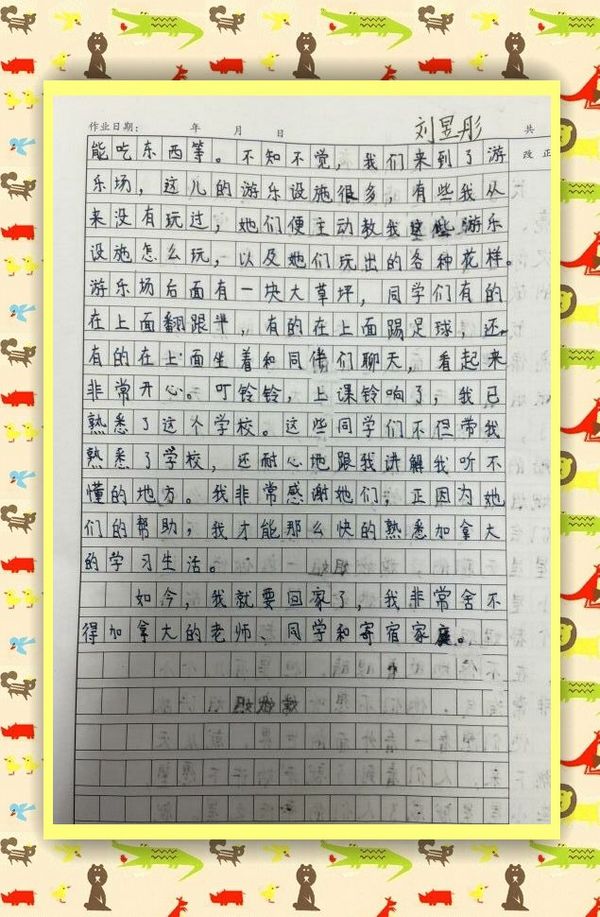 作业日期： 年 月 日 刘昱彤 共
能吃东西等。不知不觉，我们来到了游 改正
乐场，这儿的游乐设施很多，有些我从
来没有玩过，她们便主动教我这些游乐
设施怎么玩，以及她们玩出的各种花样。
游乐场后面有一块大草坪，同学们有的
在上面翻跟半，有的在上面踢足球，还
有的在上面坐着和同伴们聊天，看起来
非常开心。叮铃铃，上课铃响了，我已
熟悉了这个学校。这些同学们不但带我
熟悉了学校，还耐心地跟我讲解我听不
懂的地方。我非常感谢她们，正因为她
们的帮助，我才能那么快的熟悉加拿大
的学习生活。
如今，我就要回家了，我非常舍不
得加拿大的老师、同学和寄宿家庭。